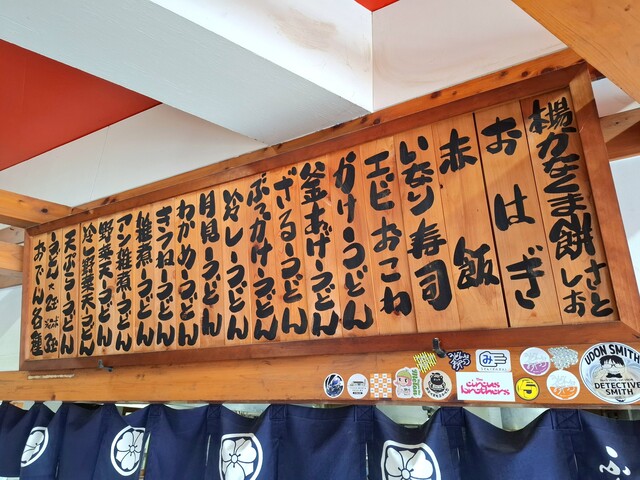 揚かんくま餅 さとしお
おはぎ
赤飯
いなり寿司
エビおこわ
かけうどん
釜あげうどん
ざるうどん
ぶっかけうどん
冷しうどん
月見うどん
わかめうどん
きつねうどん
雑煮うどん
アン雑煮うどん
野菜天うどん
冷し野菜天うどん
天ぷらうどん
うどん
おでん各種
UDON SMITH
DETECTIVE SMITH
The circus brothers
み
ふ